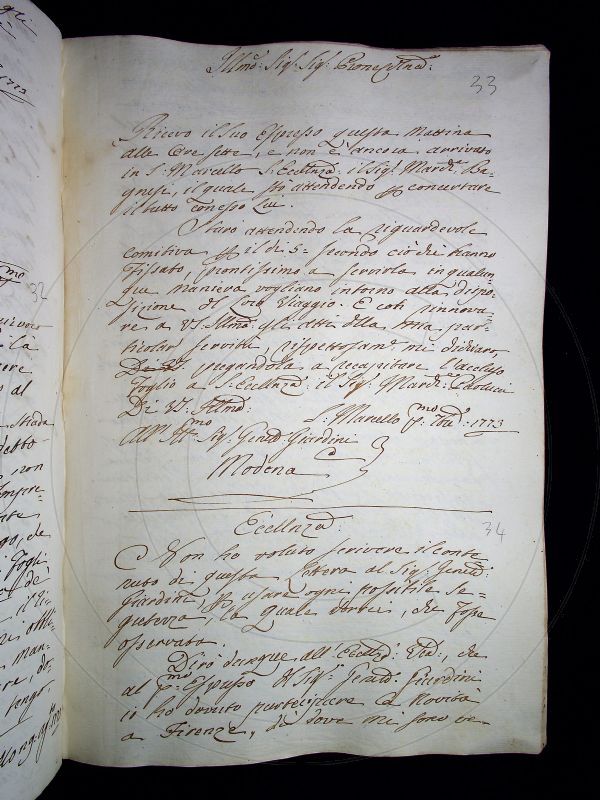 Illmo: Sig: Sig: Prone Colmo:
33
Ricevo il suo Espresso questa Mattina
alle Ore sette, e non è ancora arrivato
in S: Marcello S: Ecclnza: il Sig: March: Ba-
gnesi, il quale stò attendendo p concertare
il tutto con esso Lui.
Starò attendendo la riguardevole
comitiva p il dì 5: secondo ciò che hanno
Fissato, prontissimo a servirla in qualun-
que maniera vogliano intorno alla dispo-
sizione del loro Viaggio. E colt rinnova-
re a VS: Illma: gli atti della mia par-
ticolar servitù rispettosamte mi dichiaro,
pregandola a recapitare l'accluso
Foglio a S: Ecclnza: il Sig: March: Paolucci
Di VS: Illma:
S: Marcello pmo: 7bre: 1773
All' Sig: Genle: Giardini
Modena
34
Eccllnza:
Non ho voluto scrivere il conte
nuto di questa Lettera al Sig: Genle:
Giardini p usare ogni possibile se-
gretezza, la quale vorrei, che fosse
osservata.
Dirò dunque all' Ecclza: Vra:, che
al pmo Espresso del Sig: Genle: Giardini
io ho dovuto partecipare la Novità
a Firenze, di dove mi sono ve-
32
1773
Strada
non
Impre-
Fogli
man-
tengo,